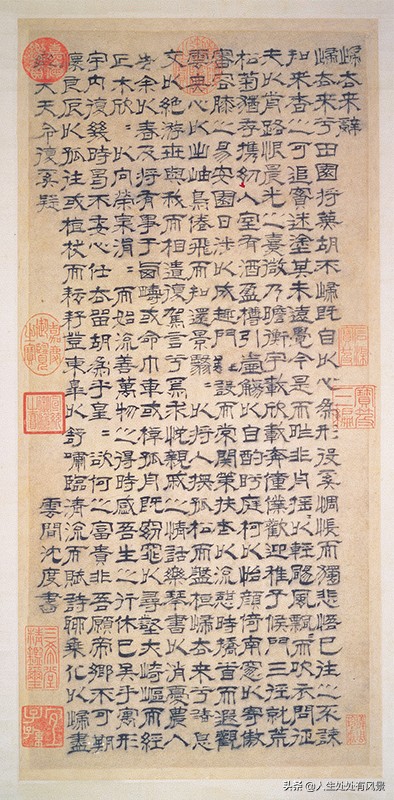 歸去來辭
歸去來兮田園將蕪胡不歸既自以心爲形役奚惆悵而獨悲悟已往之不諫
知來者之可追寔迷塗其未遠覺今是而昨非舟搖〻以輕颺風飄〻而吹衣問征
夫以前路恨晨光之熹微乃瞻衡宇載欣載奔僮僕歡迎稚子候門三徑就荒
松菊猶存攜幼入室有酒盈樽引壺觴以自酌眄庭柯以怡顏倚南窗以寄傲
審容膝之易安園日涉以成趣門雖設而常關策扶老以流憩時矯首而遐觀
雲無心以出岫鳥倦飛而知還景翳〻以將入撫孤松而盤桓歸去來兮請息
交以絕游世與我而相遺復駕言兮焉求悅親戚之情話樂琴書以消憂農人
告余以春及將有事于西疇或命巾車或棹孤舟既窈窕以尋壑亦崎嶇而經
丘木欣〻以向榮泉涓〻而始流善萬物之得時感吾生之行休已矣乎寓形
宇內復幾時曷不委心任去留胡爲乎皇〻欲何之富貴非吾願帝鄉不可期
懷良辰以孤往或植杖而耘耔登東皋以舒嘯臨清流而賦詩聊乘化以歸盡
樂夫天命復奚疑
雲間沈度書
嘉慶御覽之寶
寶笈三編
三希堂精鑑璽
宜子孫
头条 @人生处处有风景